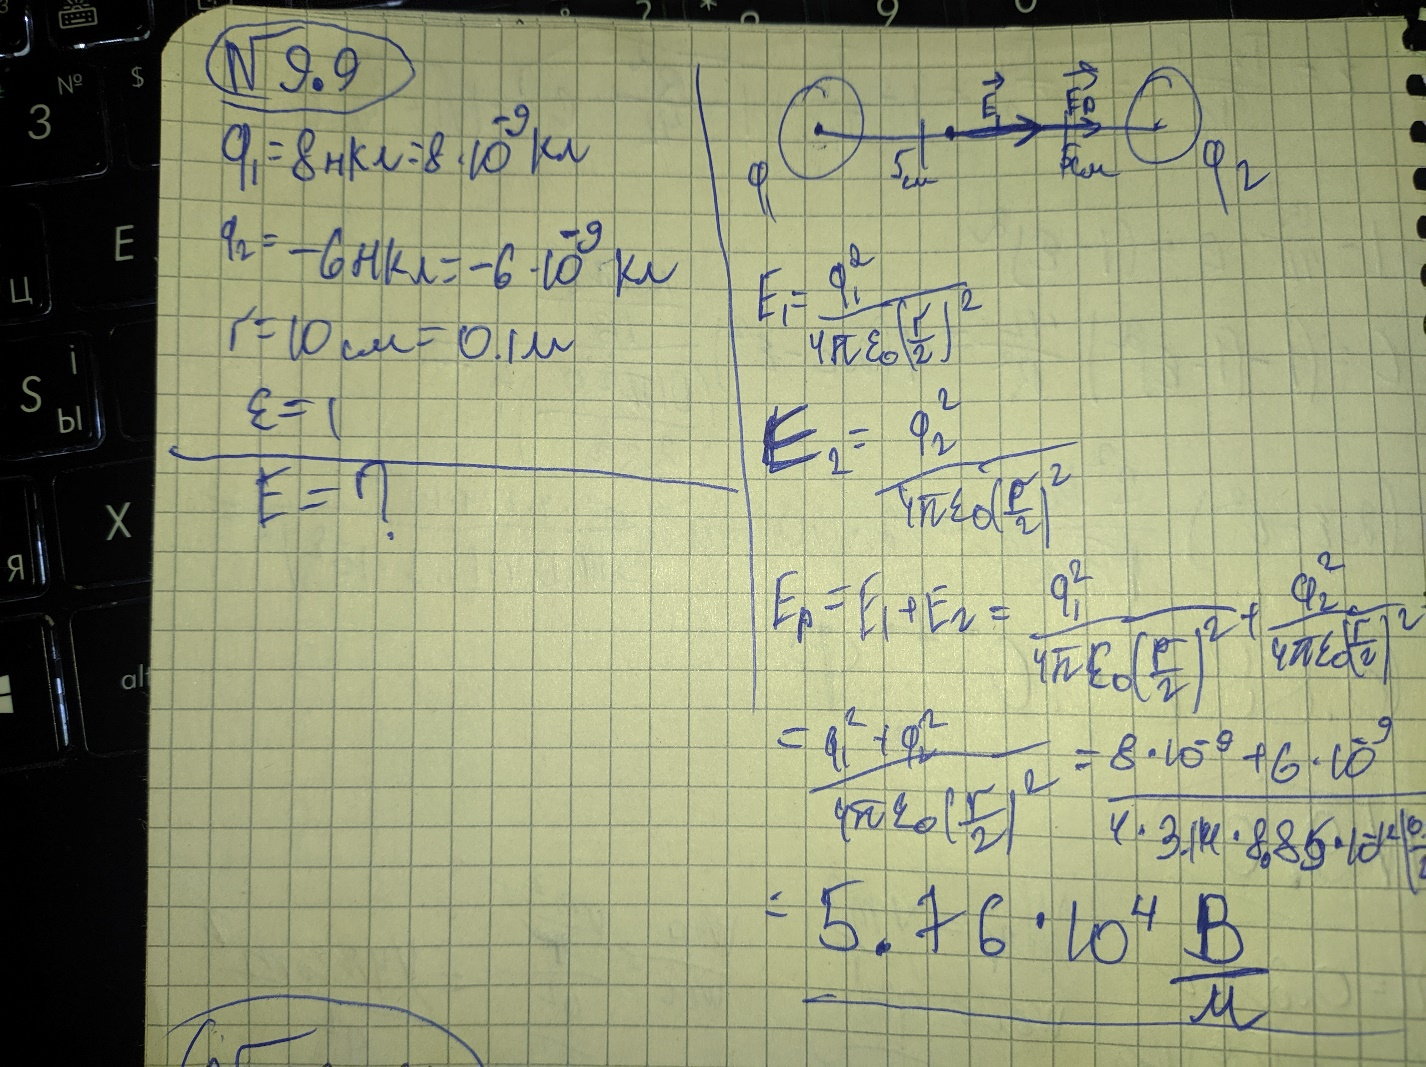 N 9.9
q₁ = 8нкл = 8·10⁻⁹ кл
q₂ = -6нкл = -6·10⁻⁹ кл
r = 10 см = 0.1м
ε = 1
E = ?
q
5см
E₁
E₂
5см
q₂
E₁ = q₁² / 4πε₀(r/2)²
E₂ = q₂² / 4πε₀(r/2)²
Eₚ = E₁ + E₂ = q₁² / 4πε₀(r/2)² + q₂² / 4πε₀(r/2)²
= q₁² + q₂² / 4πε₀(r/2)² = 8·10⁻⁹ + 6·10⁻⁹ / 4·3.14·8.85·10⁻¹²
= 5.76·10⁴ В/м
№
3
$
E
Ц
S
і
Ы
X
Я
alt